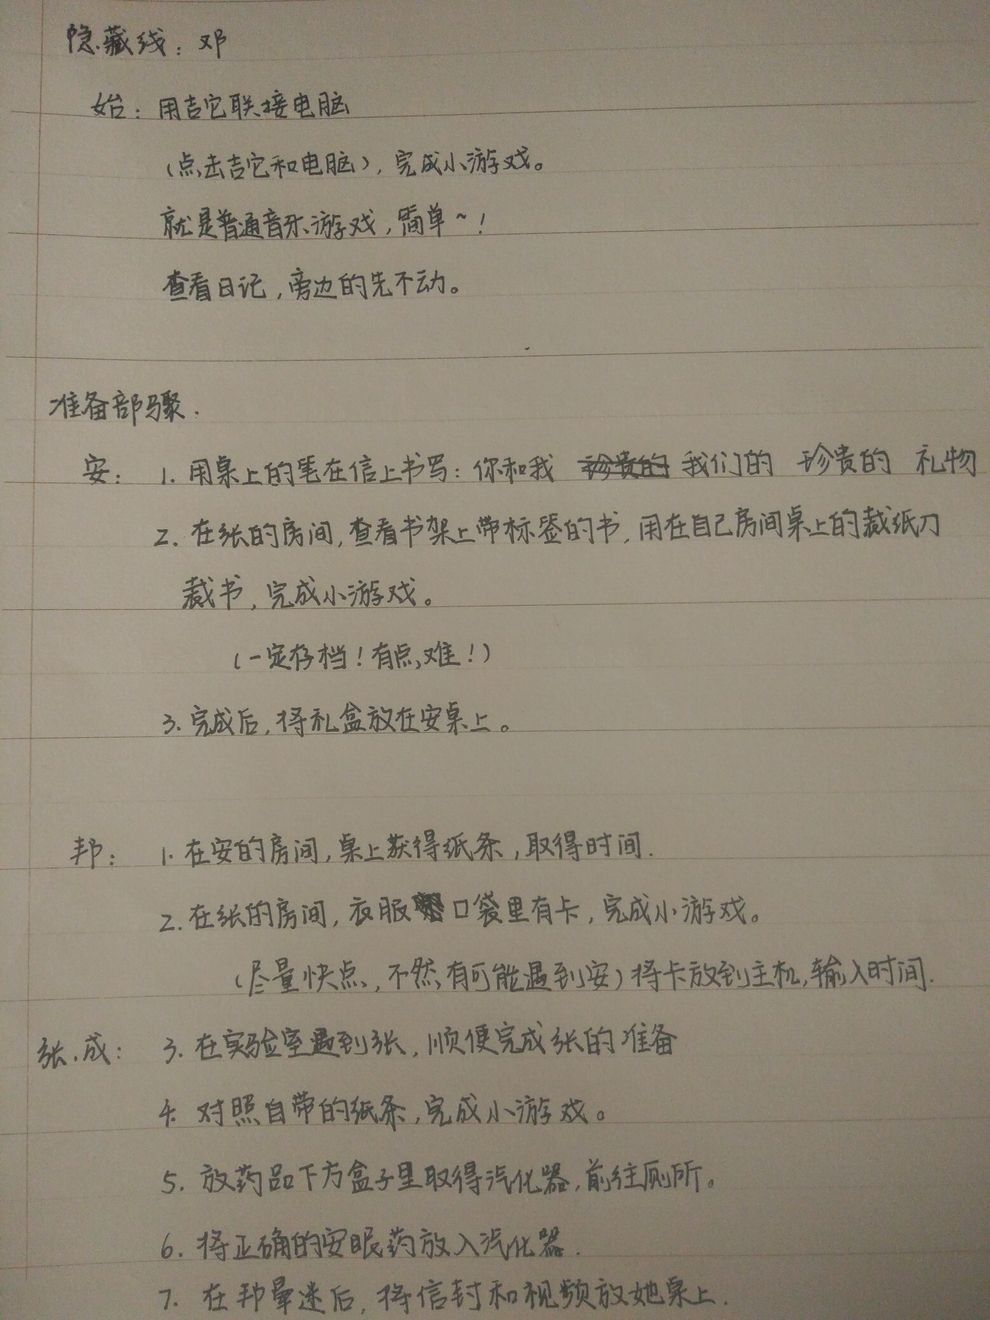 隐藏线：邓
始：用吉它联接电脑
（点击吉它和电脑），完成小游戏。
就是普通音乐游戏，简单~！
查看日记，旁边的先不动。
准备部骤.
安：1. 用桌上的笔在信上书写：你和我 珍贵的 我们的 珍贵的 礼物
2. 在张的房间，查看书架上带标签的书，用在自己房间桌上的裁纸刀
裁书，完成小游戏。
（一定存档！有点难！）
3. 完成后，将礼盒放在安桌上。
邦：1. 在安的房间，桌上获得纸条，取得时间.
2. 在张的房间，衣服口袋里有卡，完成小游戏。
（尽量快点，不然有可能遇到安）将卡放到主机，输入时间.
张.成：3. 在实验室遇到张，顺便完成张的准备
4. 对照自带的纸条，完成小游戏。
5. 放药品下方盒子里取得汽化器，前往厕所。
6. 将正确的安眠药放入汽化器.
7. 在邦晕迷后，将信封和视频放她桌上.